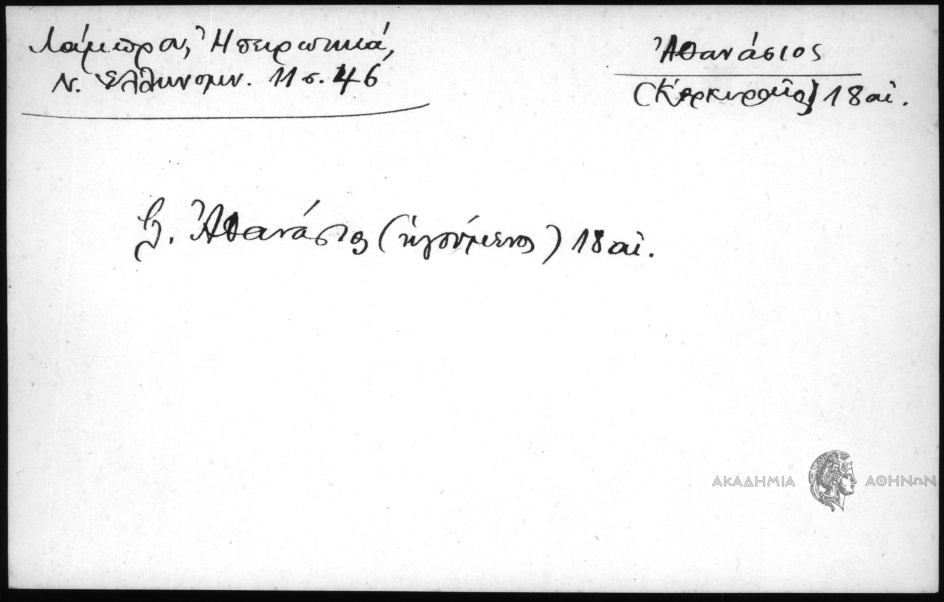 Λάμπρου, Ἠπειρωτικά,
Ν. Ἑλληνομν. 11 σ. 46
Ἀθανάσιος
(Κερκυραῖος) 18 αἰ.
Ἀθανάσιος (ἡγούμενος) 18 αἰ.
ΑΚΑΔΗΜΙΑ ΑΘΗΝΩΝ